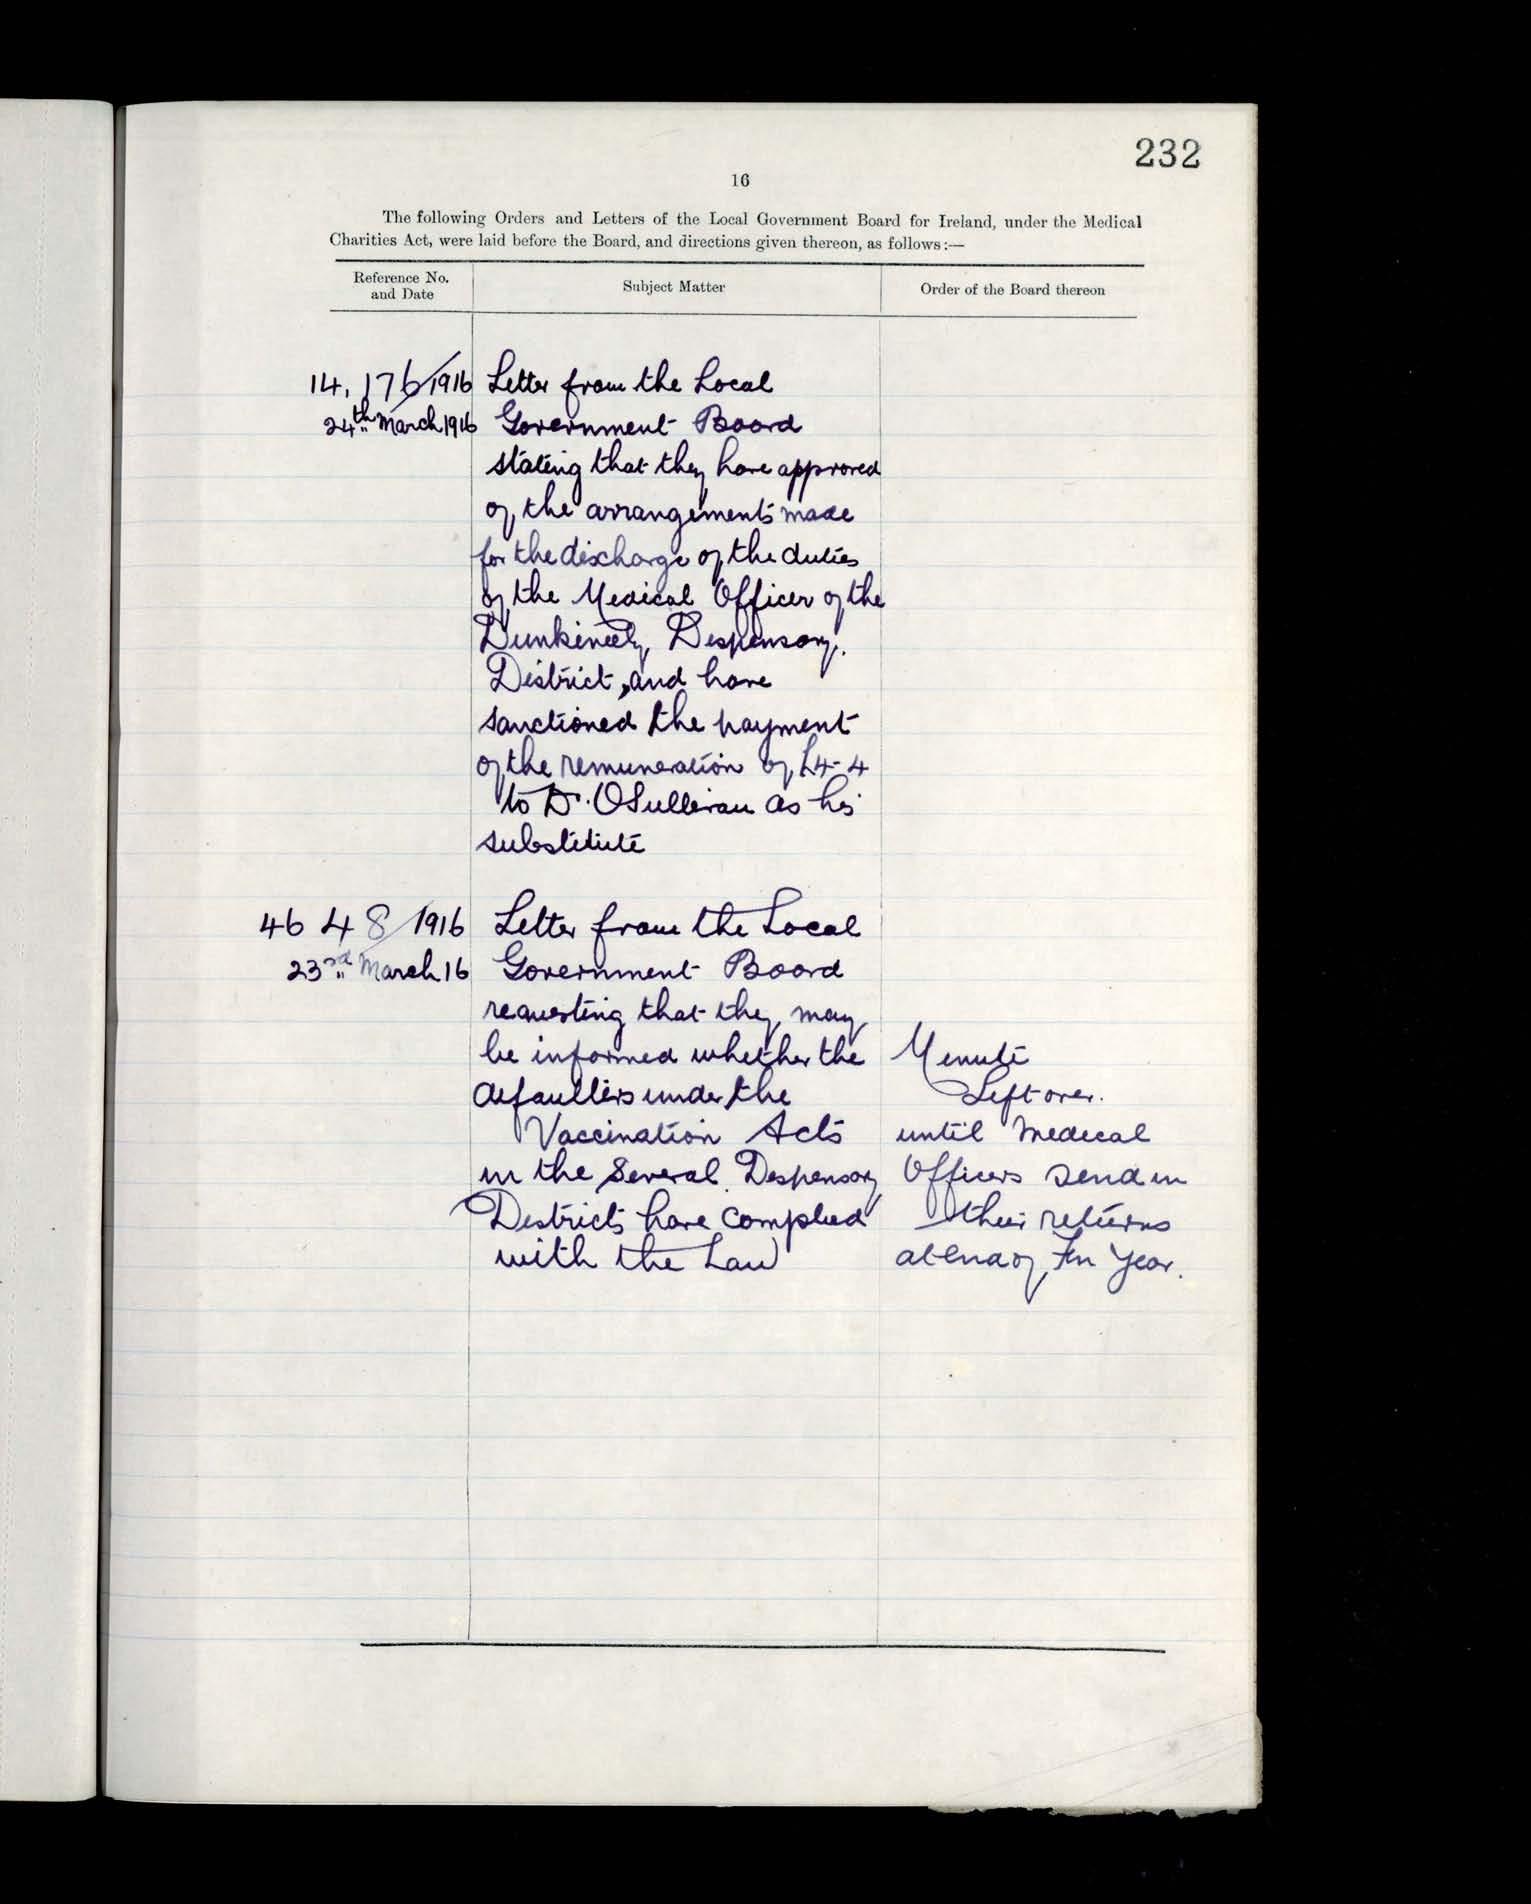 232
16
The following Orders and Letters of the Local Government Board for Ireland, under the Medical
Charities Act, were laid before the Board, and directions given thereon, as follows:—
Reference No.
and Date
Subject Matter
Order of the Board thereon
14,176/1916
24th March 1916
Letter from the Local
Government Board
stating that they have approved
of the arrangements made
for the discharge of the duties
of the Medical Officer of the
Dunkineely Dispensary.
District, and have
sanctioned the payment
of the remuneration of £4-4
to Dr. OSullivan as his
substitute
46 48/1916
23rd March 16
Letter from the Local
Government Board
requesting that they may
be informed whether the
defaulters under the
Vaccination Acts
in the Several Dispensary
Districts have complied
with the Law
Minute
Left over.
until Medical
Officers send in
their returns
at end of Fin Year.